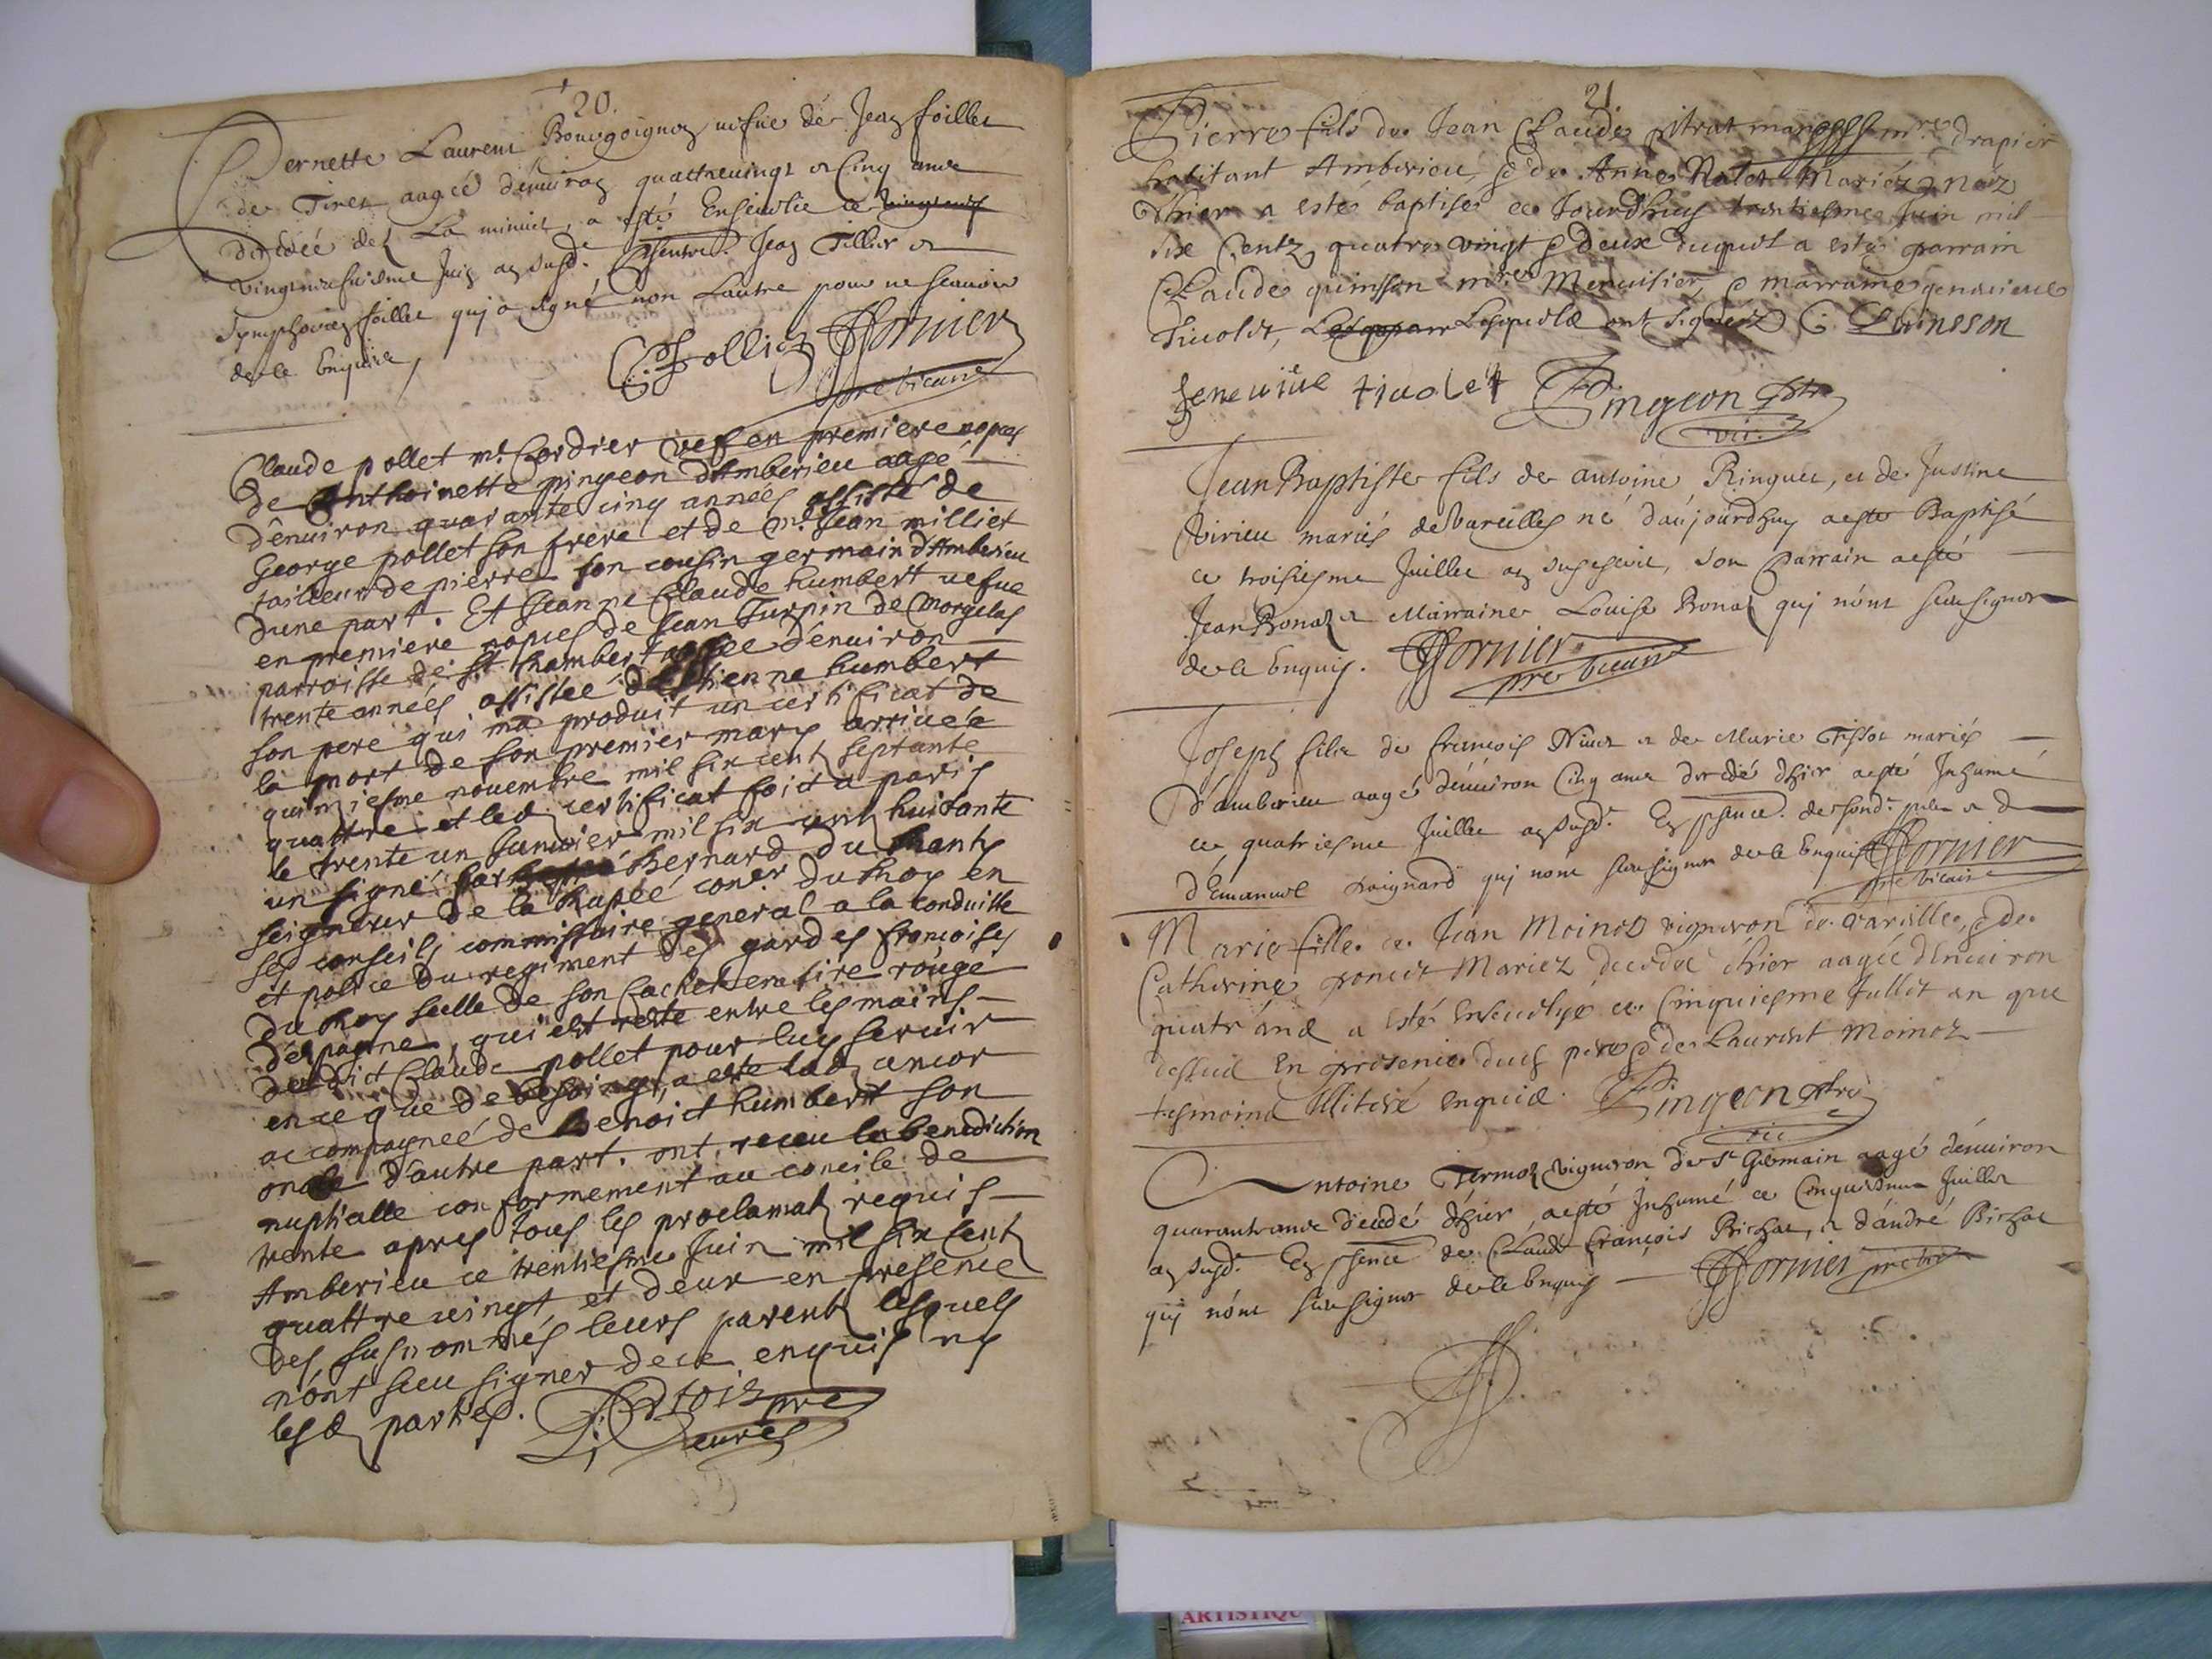 20.
Pernette Laurent Bourgoignon vefue de Jean foillet
de Tiret aagée denuiron quattreuingt & Cinq ans
decedée des La minuit, a esté Enseuelie ce
vingtneufuiesme Juin an susd. Jean Tillier &
Symphorien foillet quj a signé non Lautre pour ne scauoir
de ce Enquise
C. follietz fornier
pre vicaire
Claude pollet mr. Cordier vef en premiere nopces
de Anthoinette pingeon d'Amberieu aagé
d'enuiron quarante cinq années assisté de
George pollet son frere et de mr. Jean milliet
tailleur de pierre son cousin germain d'Amberieu
dune part. Et Jeanne Claude humbert uefue
en premiere nopces de Jean Turpin de Morgelas
parroisse de st. Rambert agée d'enuiron
trente années assistée d'estienne humbert
son pere qui ma produit un certificat de
la mort de son premier mary arriuée le
quinziesme nouembre mil six cent septante
quattre et led certificat foict a paris
le trente un Januier mil six cent huitante
un signé par Bernard du
seigneur de la coner du Roy en
ses conseils commissaire general a la conduitte
et police du regiment des gardes francoises
du Roy seelle de son Cachet en cire rouge
d'espagne, qui est resté entre les mains
du dict Claude pollet pour luy seruir
en ce que de besoing, a esté lad ancor
accompagneé de Benoict humbert son
oncle d'autre part. ont receu la benediction
nuptialle conformement au concile de
trente apres tous les proclamatz requis
Amberieu ce trentiesme Juin mil six cent
quattre vingt et deux en presence
des susnommés leurs parentz lesquels
n'ont sceu signer de ce enquis ny
les d parties. pre
Curés
21
Pierre fils de Jean Claude pitrat mre drapier
habitant Amberieu, & de Anne Natet Mariéz néz
d'hier a esté baptisé ce Jourdhuy trentiesme Juin mil
six Centz quatre vingt & deux duquel a esté parrain
Claude quinson mre Menuisier, & marraine geneuieue
Tiuolet, Lesquelz ont signéz C. Quinsson
Geneuiue tiuolet Pingeon ptre
vic.
Jean Baptiste fils de antoine Ringuet, et de Justine
Virieu mariés de Vareilles né d'aujourdhuy aesté Baptisé
ce troisiesme Juillet an susescrit, son Parrain aesté
Jean Bonaz & Marraine Louise Bonaz quj nónt sceu signer
de ce Enquis. fornier
pre vicaire
Joseph fils de francois Niuet & de Marie Tissot mariés
d'amberieu aagé d'enuiron Cinq ans decedé d'hier aesté Inhumé
ce quatriesme Juillet an susd. En psence. de sond. pere & d
d'Emanuel quj nónt sceu signer de ce Enquis fornier
pre vicaire
Marie fille de Jean Moinoz vigneron de Vareille, & de
Catherine poncet Mariez decedee d'hier aagée d'enuiron
quatr' ans a esté Enseuelye ce Cinquiesme Jullet an que
dessus En presence dud pere & de Laurent Moinoz
tesmoins illiterés enquis. Pingeon ptre
vic
Antoine Termoz vigneron de St Germain aagé d'enuiron
quarant'ans decedé d'hier, aesté Inhumé ce Cinquiesme Juillet
an susd. En psence de Claude francois Bichat, & d'andré Bichat
quj nónt sceu signer de ce Enquis fornier pre vic
ARTISTIQU